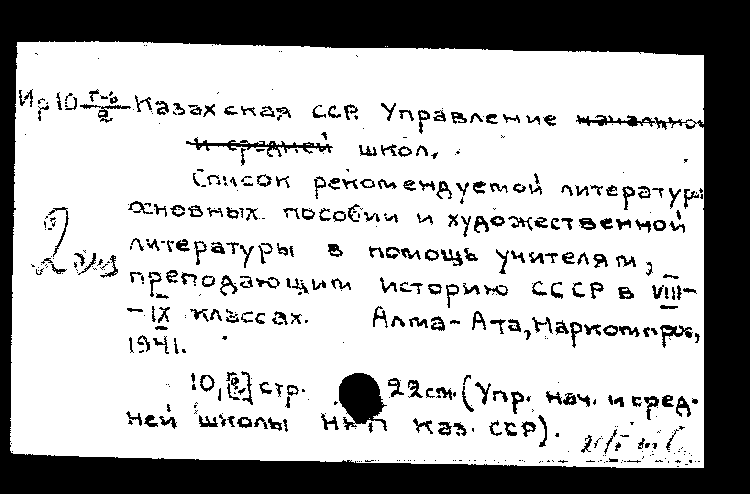 Ир10 г-6/2 Казахская ССР. Управление начальной
и средней школ.
Список рекомендуемой литературы
основных пособии и художественной
2 экз
литературы в помощь учителям,
преподающим историю СССР в VIII-
-IX классах. Алма-Ата, Наркомпрос,
1941.
10,[2] стр. 22см. (Упр. нач. и сред-
ней школы НКП Каз. ССР).